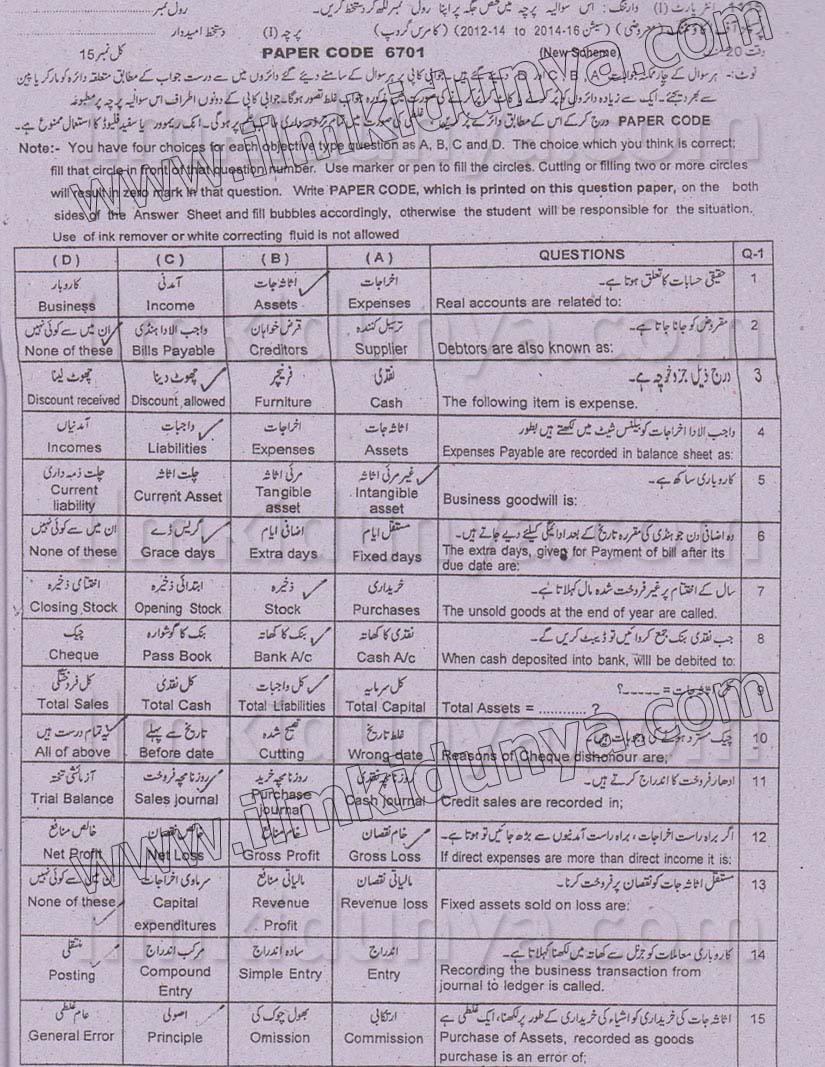 انٹر پارٹ (I) وارننگ: اس سوالیہ پرچہ میں مختص جگہ پر اپنا رول نمبر لکھ کر دستخط کریں۔ رول نمبر
(معروضی) (سیشن 2014-16 to 2012-14) (کامرس گروپ) پرچہ (I) دستخط امیدوار
وقت 20 منٹ (New Scheme) PAPER CODE 6701 کل نمبر 15
نوٹ:- ہر سوال کے چار ممکنہ جوابات A, B, C اور D دیئے گئے ہیں۔ جوابی کاپی پر ہر سوال کے سامنے دیئے گئے دائروں میں سے درست جواب کے مطابق متعلقہ دائرہ کو مارکر یا پین
سے بھر دیجئے۔ ایک سے زیادہ دائروں کو پُر کرنے یا کاٹ کر پُر کرنے کی صورت میں مذکورہ جواب غلط تصور ہوگا۔ جوابی کاپی کے دونوں اطراف اس سوالیہ پرچہ پر مطبوعہ
PAPER CODE درج کر کے اس کے مطابق دائرے پُر کریں، غلطی کی صورت میں تمام تر ذمہ داری طالب علم پر ہوگی۔ انک ریموور یا سفید فلیوڈ کا استعمال ممنوع ہے۔
Note:- You have four choices for each objective type question as A, B, C and D. The choice which you think is correct;
fill that circle in front of that question number. Use marker or pen to fill the circles. Cutting or filling two or more circles
will result in zero mark in that question. Write PAPER CODE, which is printed on this question paper, on the both
sides of the Answer Sheet and fill bubbles accordingly, otherwise the student will be responsible for the situation.
Use of ink remover or white correcting fluid is not allowed
( D ) ( C ) ( B ) ( A ) QUESTIONS Q-1
کاروبار آمدنی اثاثہ جات اخراجات حقیقی حسابات کا تعلق ہوتا ہے۔ 1
Business Income Assets Expenses Real accounts are related to:
ان میں سے کوئی نہیں واجب الادا ہنڈی قرض خواہان ترسیل کنندہ مقروض کو جانا جاتا ہے۔ 2
None of these Bills Payable Creditors Supplier Debtors are also known as:
چھوٹ لینا چھوٹ دینا فرنیچر نقدی درج ذیل جزو خرچہ ہے۔ 3
Discount received Discount allowed Furniture Cash The following item is expense.
آمدنیاں واجبات اخراجات اثاثہ جات واجب الادا اخراجات کو بیلنس شیٹ میں لکھتے ہیں بطور 4
Incomes Liabilities Expenses Assets Expenses Payable are recorded in balance sheet as:
چلت ذمہ داری چلت اثاثہ مرئی اثاثہ غیر مرئی اثاثہ کاروباری ساکھ ہے۔ 5
Current liability Current Asset Tangible asset Intangible asset Business goodwill is:
ان میں سے کوئی نہیں گریس ڈے اضافی ایام مستقل ایام وہ اضافی دن جو ہنڈی کی مقررہ تاریخ کے بعد ادائیگی کیلئے دیے جاتے ہیں۔ 6
None of these Grace days Extra days Fixed days The extra days, given for Payment of bill after its
due date are:
اختتامی ذخیرہ ابتدائی ذخیرہ ذخیرہ خریداری سال کے اختتام پر غیر فروخت شدہ مال کہلاتا ہے۔ 7
Closing Stock Opening Stock Stock Purchases The unsold goods at the end of year are called.
چیک بنک کا گوشوارہ بنک کا کھاتہ نقدی کا کھاتہ جب نقدی بنک جمع کروائیں تو ڈیبٹ کریں گے۔ 8
Cheque Pass Book Bank A/c Cash A/c When cash deposited into bank, will be debited to:
کل فروختگی کل نقدی کل واجبات کل سرمایہ کل اثاثہ جات = -----؟ 9
Total Sales Total Cash Total Liabilities Total Capital Total Assets = ............ ?
یہ تمام درست ہیں تاریخ سے پہلے تصحیح شدہ غلط تاریخ چیک مسترد ہونے کی وجوہات ہیں۔ 10
All of above Before date Cutting Wrong date Reasons of Cheque dishonour are;
آزمائشی تختہ روزنامچہ فروخت روزنامچہ خرید روزنامچہ نقدی ادھار فروخت کا اندراج کرتے ہیں۔ 11
Trial Balance Sales journal Purchase journal Cash journal Credit sales are recorded in;
خالص منافع خالص نقصان خام منافع خام نقصان اگر براہ راست اخراجات، براہ راست آمدنیوں سے بڑھ جائیں تو ہوتا ہے۔ 12
Net Profit Net Loss Gross Profit Gross Loss If direct expenses are more than direct income it is:
ان میں سے کوئی نہیں سرماوی اخراجات مالیاتی منافع مالیاتی نقصان مستقل اثاثہ جات کو نقصان پر فروخت کرنا۔ 13
None of these Capital expenditures Revenue Profit Revenue loss Fixed assets sold on loss are:
منتقلی مرکب اندراج سادہ اندراج اندراج کاروباری معاملات کو جرنل سے کھاتہ میں لکھنا کہلاتا ہے۔ 14
Posting Compound Entry Simple Entry Entry Recording the business transaction from
journal to ledger is called.
عام غلطی اصولی بھول چوک کی ارتکابی اثاثہ جات کی خریداری کو اشیاء کی خریداری کے طور پر لکھنا، ایک غلطی ہے 15
General Error Principle Omission Commission Purchase of Assets, recorded as goods
purchase is an error of;
www.ilmkidunya.com
www.ilmkidunya.com